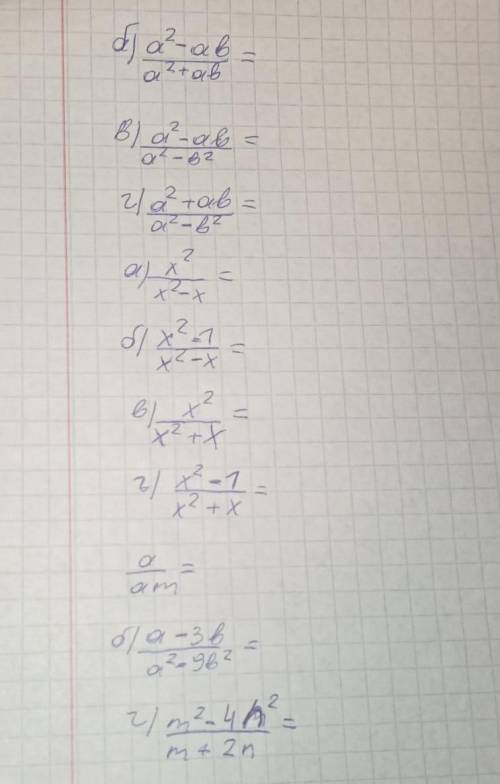 б) (a² - ab)/(a² + ab) =
в) (a² - ab)/(a² - b²) =
г) (a² + ab)/(a² - b²) =
а) x²/(x² - x) =
б) (x² - 1)/(x² - x) =
в) x²/(x² + x) =
г) (x² - 1)/(x² + x) =
a/(am) =
б) (a - 3b)/(a² - 9b²) =
г) (m² - 4n²)/(m + 2n) =